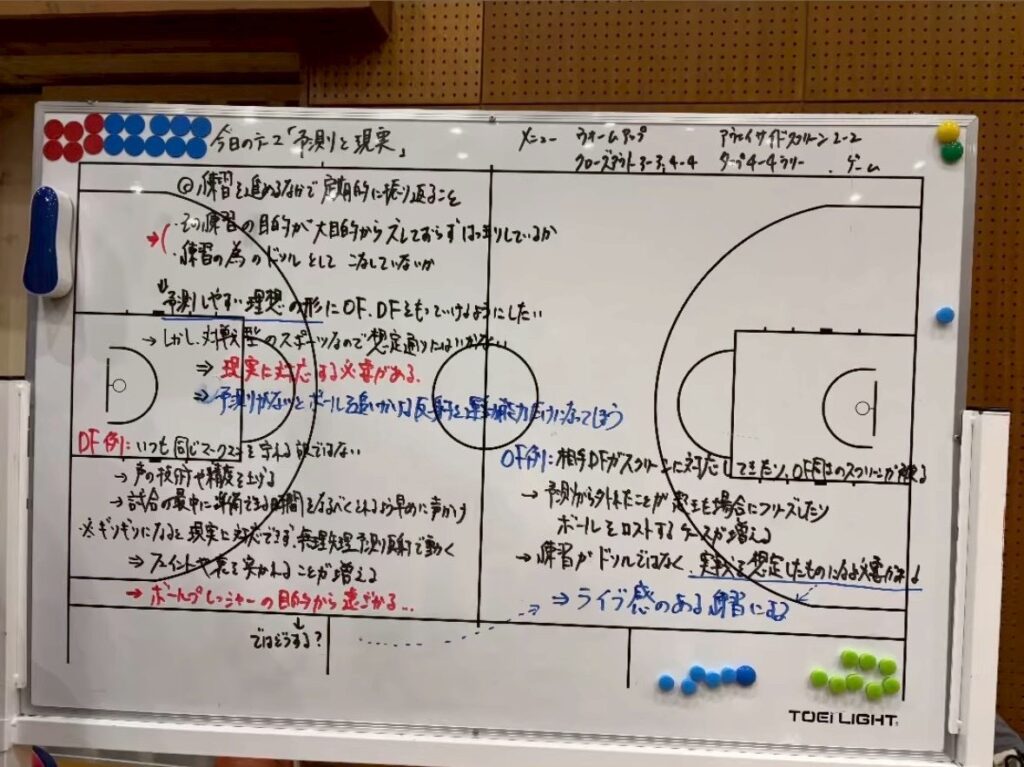 今日のテーマ「予測と現実」
メニュー ウォームアップ アウェイサイドスクリーン2-2
クローズアウト3-3,4-4 4-4ラリー ゲーム
◎練習を進めるなかで定期的に振り返ること
・その練習の目的が大目的からズレておらずはっきりしているか
・練習の為のドリルとしてこなしていないか
予測しやすい理想の形にOF、DFをもっていけるようにしたい
→しかし、対戦型のスポーツなので想定通りにはいかない
⇒現実に対応する必要がある。
⇒予測がないとボールを追いかける反射と運動能力だけになってしまう
DF例:いつも同じマークマンを守れる訳ではない
→声の技術や精度を上げる
→試合の最中に準備できる時間をなるべくとれるよう早めに声かけ
※ギリギリになると現実に対応できず、無理矢理予測反射で動く
→フェイントや裏を突かれることが増える
→ボールプレッシャーの目的から遠ざかる…
ではどうする?
OF例:相手DFがスクリーンに対応してきたり、OF同士のスクリーンが
→予測から外れたことが起きた場合にフリーズしたり
ボールをロストするケースが増える
→練習がドリルではなく、実戦を想定したものになる必要がある
⇒ライブ感のある練習にする
TOEI LIGHT